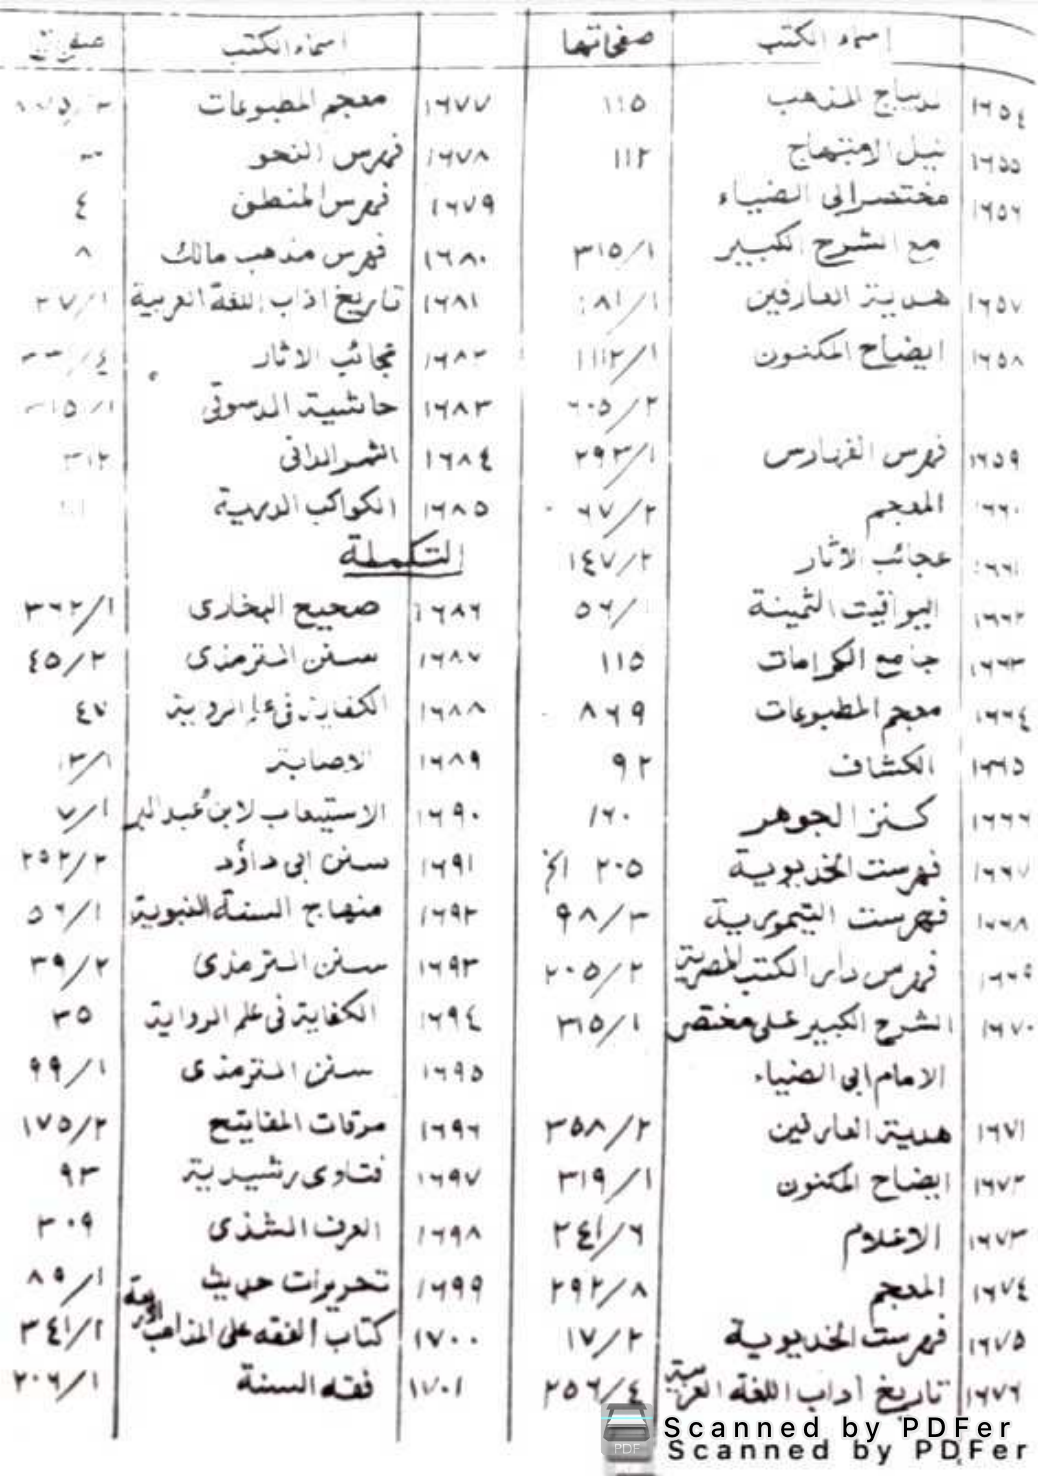 اسماء الكتب	صفحاتها
١٦٥٤ ديباج المذهب ١١٥
١٦٥٥ نيل الابتهاج ١١٢
١٦٥٦ مختصر ابى الضياء
مع الشرح الكبير ٣١٥/١
١٦٥٧ هدية العارفين ٨١/١
١٦٥٨ ايضاح المكنون ١١١٢/١
٦٠٥/٢
١٦٥٩ فهرس الفهارس ٢٩٣/١
١٦٦٠ المعجم ٦٧/٢
١٦٦١ عجائب الاثار ١٤٧/٢
١٦٦٢ اليواقيت الثمينة ٥٦/١
١٦٦٣ جامع الكرامات ١١٥
١٦٦٤ معجم المطبوعات ٨٦٩
١٦٦٥ الكشاف ٩٢
١٦٦٦ كنز الجوهر ١٦٠
١٦٦٧ فهرست الخديوية ٢٠٥ الخ
١٦٦٨ فهرست التيمورية ٩٨/٣
١٦٦٩ فهرس دار الكتب المصرية ٢٠٥/٢
١٦٧٠ الشرح الكبير على مختصر ٣١٥/١
الامام ابى الضياء
١٦٧١ هدية العارفين ٣٥٨/٢
١٦٧٢ ايضاح المكنون ٣١٩/١
١٦٧٣ الاعلام ٢٤١/٦
١٦٧٤ المعجم ٢٩٢/٨
١٦٧٥ فهرست الخديوية ١٧/٢
١٦٧٦ تاريخ أداب اللغة العربية ٢٥٦/٤
اسماء الكتب
١٦٧٧ معجم المطبوعات
١٦٧٨ فهرس النحو
١٦٧٩ فهرس المنطق ٤
١٦٨٠ فهرس مذهب مالك ٨
١٦٨١ تاريخ اداب اللغة العربية ٢٧/١
١٦٨٢ عجائب الاثار
١٦٨٣ حاشية الدسوقى ٣١٥/١
١٦٨٤ الثمر الدانى ٣١٢
١٦٨٥ الكواكب الدرية
التكملة
١٦٨٦ صحيح البخارى ٣٦٢/١
١٦٨٧ سنن الترمذى ٤٥/٢
١٦٨٨ الكفاية فى علم الرواية ٤٧
١٦٨٩ الاصابة ١٣/١
١٦٩٠ الاستيعاب لابن عبد البر ٧/١
١٦٩١ سنن ابى داؤد ٢٥٢/٢
١٦٩٢ منهاج السنة النبوية ٥٦/١
١٦٩٣ سنن الترمذى ٣٩/٢
١٦٩٤ الكفاية فى علم الرواية ٣٥
١٦٩٥ سنن الترمذى ٩٩/١
١٦٩٦ مرقات المفاتيح ١٧٥/٢
١٦٩٧ فتاوى رشيدية ٩٣
١٦٩٨ العرف الشذى ٣٠٩
١٦٩٩ تحريرات حديث ٨٥/١
١٧٠٠ كتاب الفقه على المذاهب الاربعة ٣٤١/١
١٧٠١ فقه السنة ٢٠٦/١
Scanned by PDFer
Scanned by PDFer
PDF